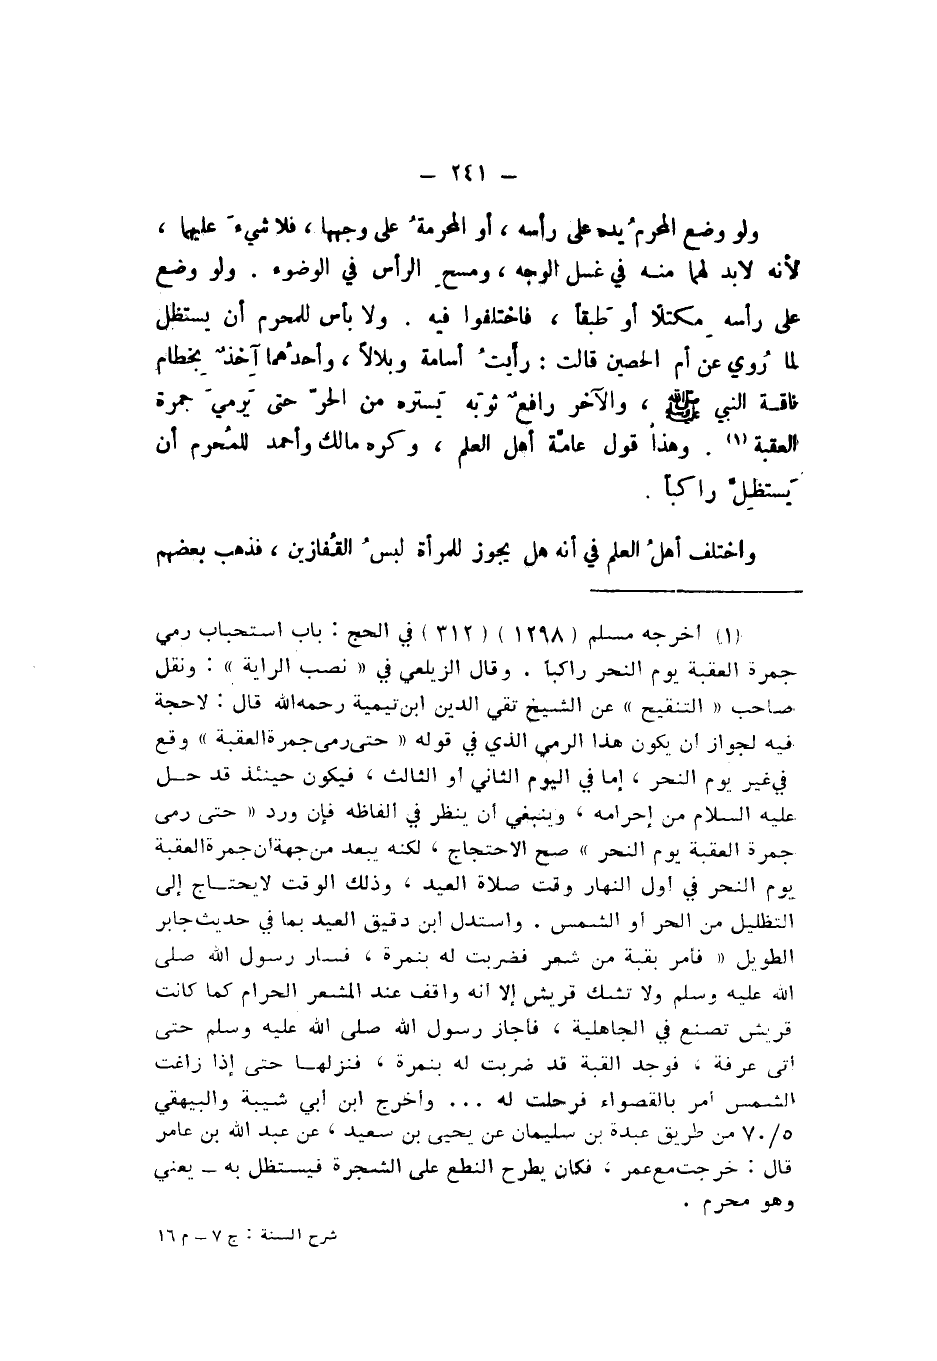 – ٢٤١ –
ولو وضع المحرمُ يده على رأسه ، أو المحرمةُ على وجهها ، فلا شيءَ عليها ،
لأنه لابد لهما منه في غسل الوجه ، ومسحِ الرأس في الوضوء . ولو وضع
على رأسه مِكتلاً أو طَبقاً ، فاختلفوا فيه . ولا بأس للمحرم أن يستظل
لما رُوي عن أم الحصين قالت : رأيتُ أسامة وبلالاً ، وأحدُهما آخذٌ بِخطام
ناقة النبي ﷺ ، والآخر رافعٌ ثوبَه يَستره من الحرّ حتى يَرميَ جمرة
العقبة (١) . وهذا قول عامّة أهل العلم ، وكره مالك وأحمد للمُحرم أن
يَستظِلَّ راكباً .
واختلف أهلُ العلم في أنه هل يجوز للمرأة لبسُ القُفازين ، فذهب بعضهم
(١) أخرجه مسلم ( ١٢٩٨ ) ( ٣١٢ ) في الحج : باب استحباب رمي
جمرة العقبة يوم النحر راكباً . وقال الزيلعي في « نصب الراية » : ونقل
صاحب « التنقيح » عن الشيخ تقي الدين ابن تيمية رحمه الله قال : لا حجة
فيه لجواز أن يكون هذا الرمي الذي في قوله « حتى رمى جمرة العقبة » وقع
في غير يوم النحر ، إما في اليوم الثاني أو الثالث ، فيكون حينئذ قد حل
عليه السلام من إحرامه ، وينبغي أن ينظر في ألفاظه فإن ورد « حتى رمى
جمرة العقبة يوم النحر » صح الاحتجاج ، لكنه يبعد من جهة أن جمرة العقبة
يوم النحر في أول النهار وقت صلاة العيد ، وذلك الوقت لا يحتاج إلى
التظليل من الحر أو الشمس . واستدل ابن دقيق العيد بما في حديث جابر
الطويل « فأمر بقبة من شعر فضربت له بنمرة ، فسار رسول الله صلى
الله عليه وسلم ولا تشك قريش إلا أنه واقف عند المشعر الحرام كما كانت
قريش تصنع في الجاهلية ، فأجاز رسول الله صلى الله عليه وسلم حتى
أتى عرفة ، فوجد القبة قد ضربت له بنمرة ، فنزلها حتى إذا زاغت
الشمس أمر بالقصواء فرحلت له ... وأخرج ابن أبي شيبة والبيهقي
٥/٧٠ من طريق عبدة بن سليمان عن يحيى بن سعيد ، عن عبد الله بن عامر
قال : خرجت مع عمر ، فكان يطرح النطع على الشجرة فيستظل به – يعني
وهو محرم .
شرح السنة : ج ٧ – م ١٦